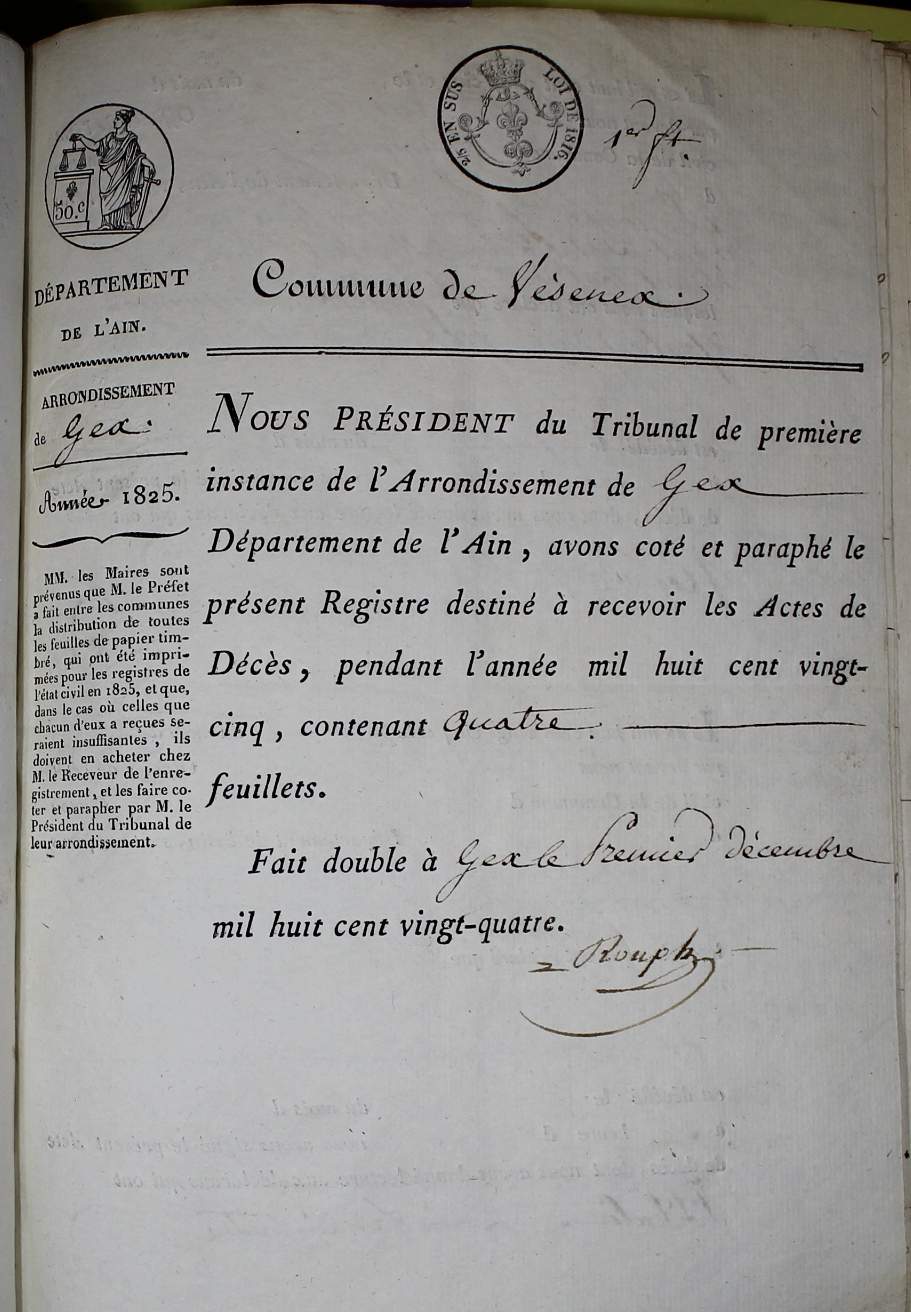 25 EN SUS LOI DE 1816.
1er ft.
50.c
DÉPARTEMENT
DE L'AIN.
ARRONDISSEMENT
de Gex.
Année 1825.
MM. les Maires sont
prévenus que M. le Préfet
a fait entre les communes
la distribution de toutes
les feuilles de papier tim-
bré, qui ont été impri-
mées pour les registres de
l'état civil en 1825, et que,
dans le cas où celles que
chacun d'eux a reçues se-
raient insuffisantes, ils
doivent en acheter chez
M. le Receveur de l'enre-
gistrement, et les faire co-
ter et parapher par M. le
Président du Tribunal de
leur arrondissement.
Commune de Vésenex.
NOUS PRÉSIDENT du Tribunal de première
instance de l'Arrondissement de Gex
Département de l'Ain, avons coté et paraphé le
présent Registre destiné à recevoir les Actes de
Décès, pendant l'année mil huit cent vingt-
cinq, contenant quatre.
feuillets.
Fait double à Gex le Premier décembre
mil huit cent vingt-quatre.
Rouph